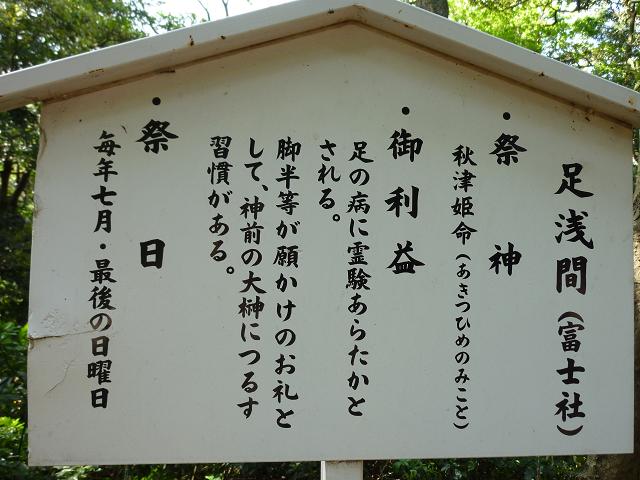 足浅間(富士社)
・祭神
秋津姫命(あきつひめのみこと)
・御利益
足の病に霊験あらたかと
される。
脚半等が願かけのお礼と
して、神前の大榊につるす
習慣がある。
・祭日
毎年七月・最後の日曜日